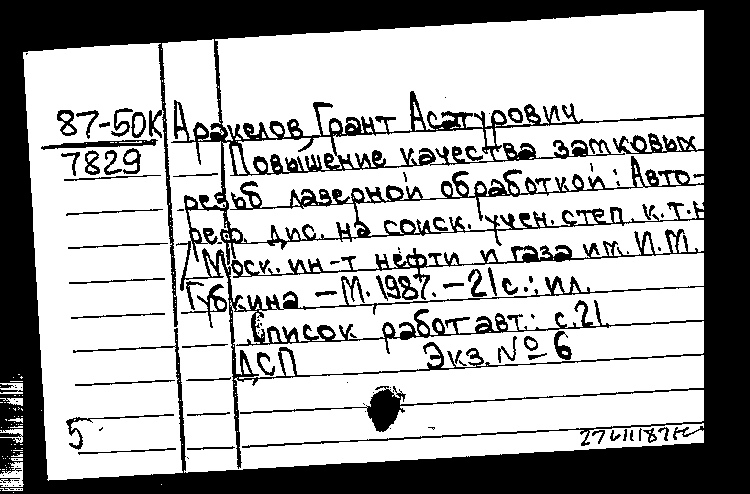 87-50К Аракелов, Грант Асатурович
7829 Повышение качества замковых
резьб лазерной обработкой: Авто-
реф. дис. на соиск. учен. степ. к.т.н
/ Моск. ин-т нефти и газа им. И.М.
Губкина. – М., 1987. – 21 с.: ил.
Список работ авт.: с. 21.
ДСП Экз. № 6
5